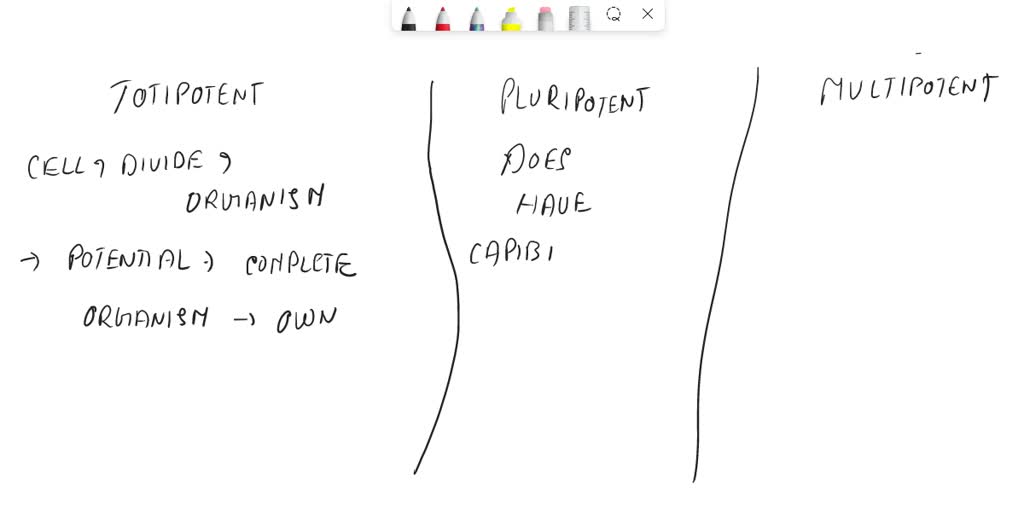 TOTIPOTENT
CELL, DIVIDE,
ORGANISM
→ POTENTIAL → COMPLETE
ORGANISM → OWN
PLURIPOTENT
DOES
HAVE
CAPIBI
MULTIPOTENT